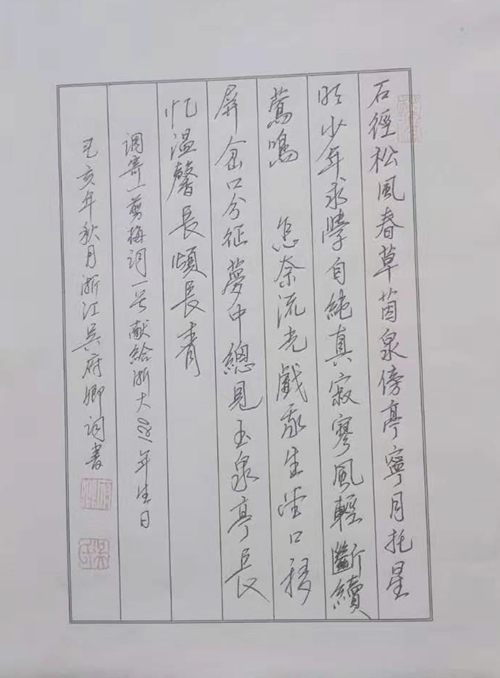 石徑松風春草茵泉傍亭寧月托星
少年求學自純真寂寥風輕斷續
鶯鳴 怎奈流光戲我生口移
屏岔口分征夢中總見玉泉亭長
忆温馨長頌長青
调寄一剪梅词一首献给浙大年生日
己亥年秋月浙江吳府卿词书